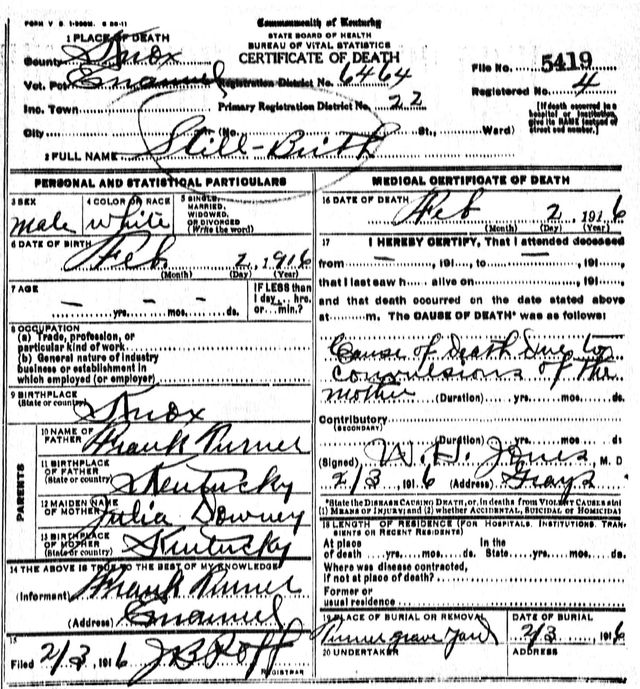 FORM V. S. 1-200M. 8 26-11
Commonwealth of Kentucky
STATE BOARD OF HEALTH
BUREAU OF VITAL STATISTICS
CERTIFICATE OF DEATH
1 PLACE OF DEATH
County Knox
Vot. Pct Emanuel Registration District No. 6464
File No. 5419
Inc. Town Primary Registration District No. 22
Registered No. 4
City (No. St., Ward)
[If death occurred in a hospital or institution, give its NAME instead of street and number.]
2 FULL NAME Still-Birth
PERSONAL AND STATISTICAL PARTICULARS
3 SEX male
4 COLOR OR RACE white
5 SINGLE, MARRIED, WIDOWED, OR DIVORCED (Write the word)
6 DATE OF BIRTH Feb 2, 1916
(Month) (Day) (Year)
7 AGE
— yrs. — mos. — ds.
IF LESS than 1 day... hrs. or... min.?
8 OCCUPATION
(a) Trade, profession, or particular kind of work
(b) General nature of industry business or establishment in which employed (or employer)
9 BIRTHPLACE (State or country) Knox
PARENTS
10 NAME OF FATHER Frank Turner
11 BIRTHPLACE OF FATHER (State or country) Kentucky
12 MAIDEN NAME OF MOTHER Julia Downey
13 BIRTHPLACE OF MOTHER (State or country) Kentucky
14 THE ABOVE IS TRUE TO THE BEST OF MY KNOWLEDGE
(Informant) Frank Turner
(Address) Emanuel
15
Filed 2/3, 1916 J B Roff
REGISTRAR
MEDICAL CERTIFICATE OF DEATH
16 DATE OF DEATH Feb 2, 1916
(Month) (Day) (Year)
17 I HEREBY CERTIFY, That I attended deceased
from —, 191 , to —, 191 ,
that I last saw h alive on , 191 ,
and that death occurred on the date stated above
at m. The CAUSE OF DEATH* was as follows:
Cause of Death Due to
convulsions of the
mother (Duration) yrs. mos. ds.
Contributory
(SECONDARY)
(Duration) yrs. mos. ds.
(Signed) W. H. Jones M. D
2/3, 1916 (Address) Grays
*State the DISEASE CAUSING DEATH, or, in deaths from VIOLENT CAUSES state (1) MEANS OF INJURY; and (2) whether ACCIDENTAL, SUICIDAL OR HOMICIDAL
18 LENGTH OF RESIDENCE (FOR HOSPITALS, INSTITUTIONS, TRANSIENTS OR RECENT RESIDENTS)
At place of death yrs. mos. ds.
In the State yrs. mos. ds.
Where was disease contracted, If not at place of death?
Former or usual residence
19 PLACE OF BURIAL OR REMOVAL Turner grave Yard
DATE OF BURIAL 2/3 1916
20 UNDERTAKER
ADDRESS